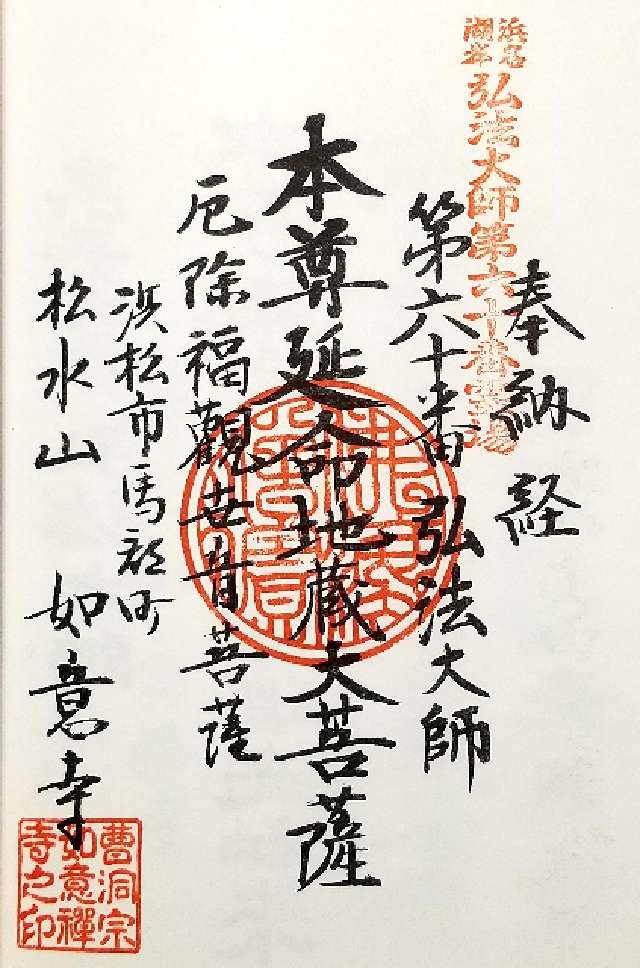 浜名
湖岸
弘法大師第六十番霊場
奉納経
第六十番 弘法大師
本尊延命地蔵大菩薩
厄除福觀世音菩薩
浜松市馬郡町
松水山 如意寺
曹洞宗
如意禅
寺之印